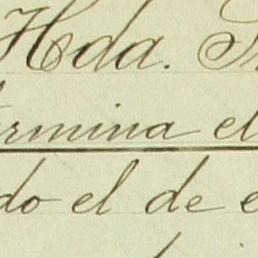 Hda.
termina el
do el de e